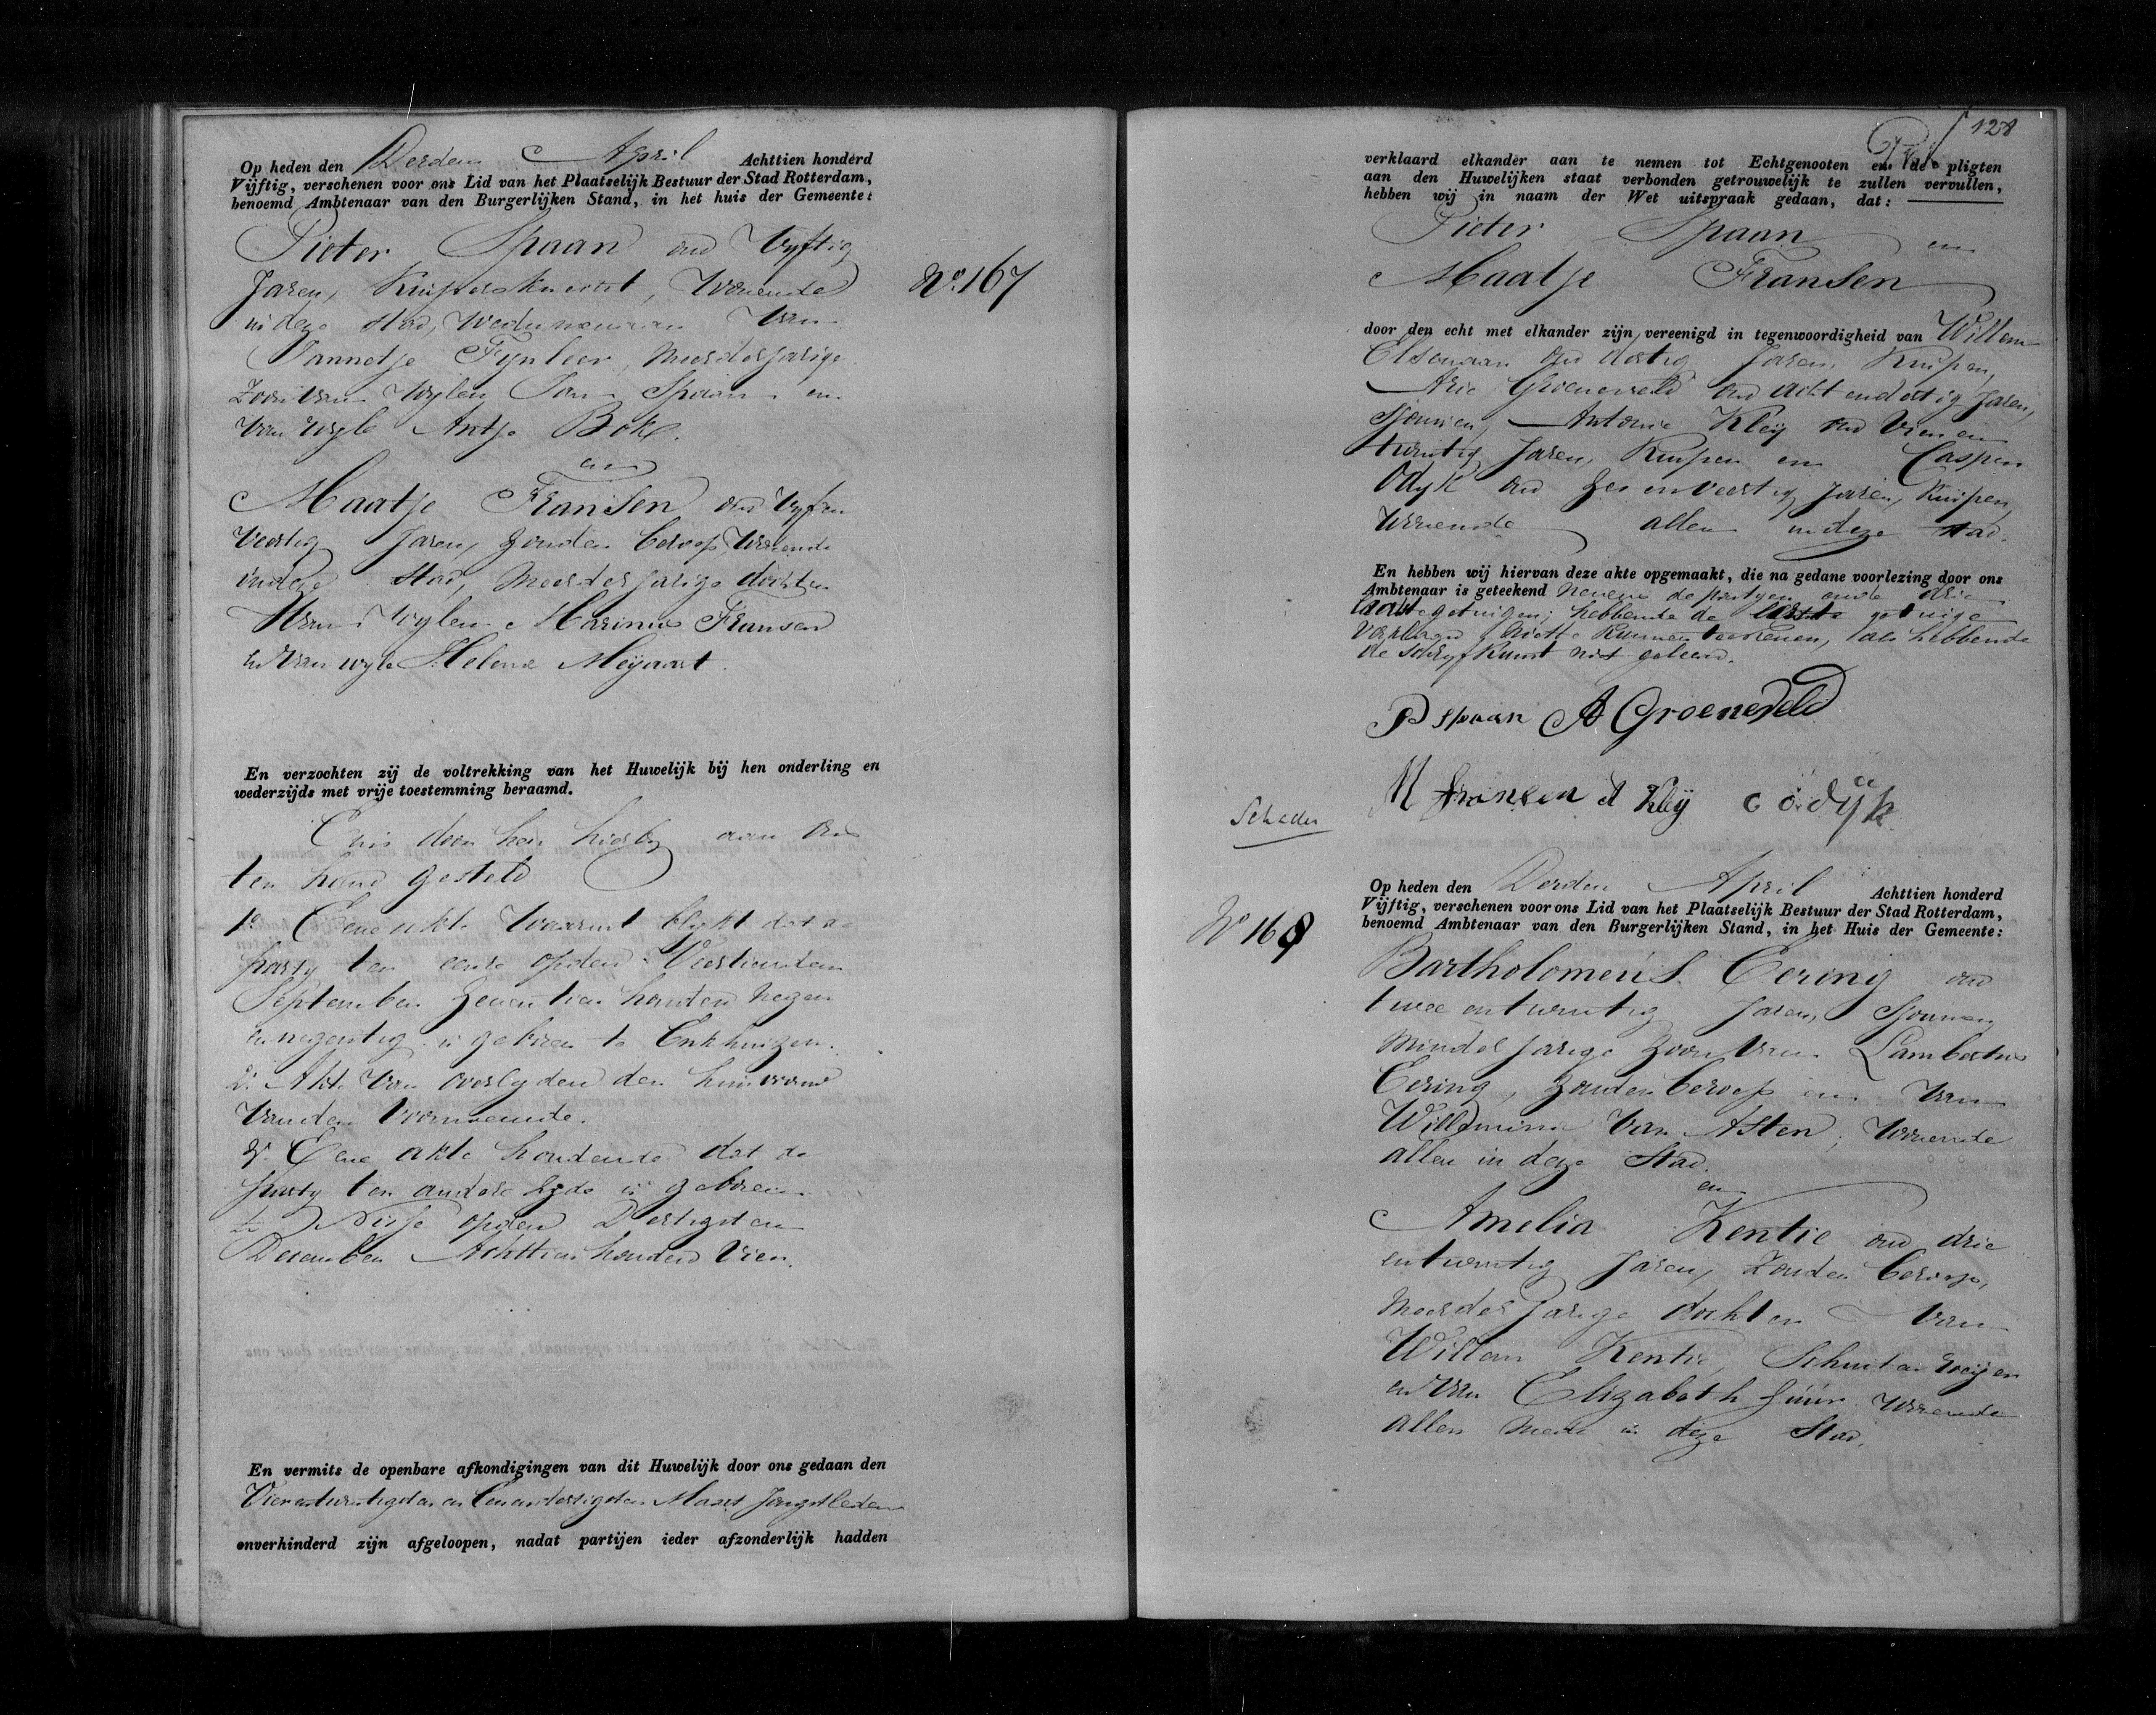 Op heden den Derden April Achttien honderd
Vijftig, verschenen voor ons Lid van het Plaatselijk Bestuur der Stad Rotterdam,
benoemd Ambtenaar van den Burgerlijken Stand, in het huis der Gemeente:
Pieter Spaan oud Vyftig
Jaren, Kuipersknecht, Wonende
in deze stad, Weduwenaar Van
Jannetje Fynleer, Meerderjarige
Zoon van Wylen Jan Spaan en
Van wyle Antje Bok.
en
Maatje Fransen oud Vyf en
Veertig Jaren, Zonder beroep, Wonende
in deze Stad, Meerderjarige dochter
Van Wylen Marinus Fransen
en Van wyle Helena Meijaart.
No. 167
En verzochten zij de voltrekking van het Huwelijk bij hen onderling en
wederzijds met vrije toestemming beraamd.
En is door hen hierby aan ons
ter hand gesteld
1o. Eene akte Waaruit blykt dat de
party ter eenre op den Veertienden
September Zeventien honderd Negen
en negentig is geboren te Enkhuizen.
2o. Akte Van overlyden der huisvrouw
Van den Voornoemde.
3o. Eene akte houdende dat de
party ter andere Zyde is geboren
te Nisse op den Dertigsten
December Achttien honderd Vier.
En vermits de openbare afkondigingen van dit Huwelijk door ons gedaan den
Vierentwintigsten en Eenendertigsten Maart Jongstleden
onverhinderd zijn afgeloopen, nadat partijen ieder afzonderlijk hadden
128
verklaard elkander aan te nemen tot Echtgenooten en de pligten
aan den Huwelijken staat verbonden getrouwelijk te zullen vervullen,
hebben wij in naam der Wet uitspraak gedaan, dat:
Pieter Spaan en
Maatje Fransen
door den echt met elkander zijn vereenigd in tegenwoordigheid van Willem
Elsonaar oud dertig Jaren, Kuiper,
Arie Groeneveld oud acht en dertig Jaren,
Sjouwer, Antonie Kleij oud Vier en
twintig Jaren, Kuiper en Casper
Odyk oud Zes en Veertig Jaren, Kuiper,
Wonende allen in deze stad.
En hebben wij hiervan deze akte opgemaakt, die na gedane voorlezing door ons
Ambtenaar is geteekend nevens de partyen en de drie
laatste getuigen; hebbende de eerste getuige
Verklaard niet te Kunnen teekenen, als hebbende
de schryfkunst niet geleerd.
P Spaan A Groeneveld
M fransen A Kleij C odijk
Schader
No 168
Op heden den Derden April Achttien honderd
Vijftig, verschenen voor ons Lid van het Plaatselijk Bestuur der Stad Rotterdam,
benoemd Ambtenaar van den Burgerlijken Stand, in het Huis der Gemeente:
Bartholomeús Eering oud
twee en twintig Jaren, Sjouwer
Minderjarige Zoon Van Lambertus
Eering, Zonder beroep en Van
Willemina Van Asten, Wonende
allen in deze Stad.
en
Amelia Kentie oud drie
en twintig Jaren, Zonder beroep,
Meerderjarige dochter Van
Willem Kentie, Schuitenvoerer
en Van Elizabeth Wonende
allen mede in deze Stad.